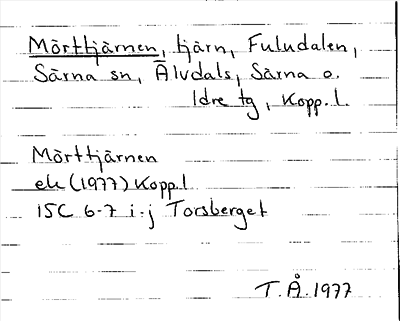 Mörttjärnen, tjärn, Fuludalen,
Särna sn, Älvdals, Särna o.
Idre tg, Kopp. l.
Mörttjärnen
ek (1977) Kopp. l
15C 6-7 i-j Torsberget
T.Å. 1977